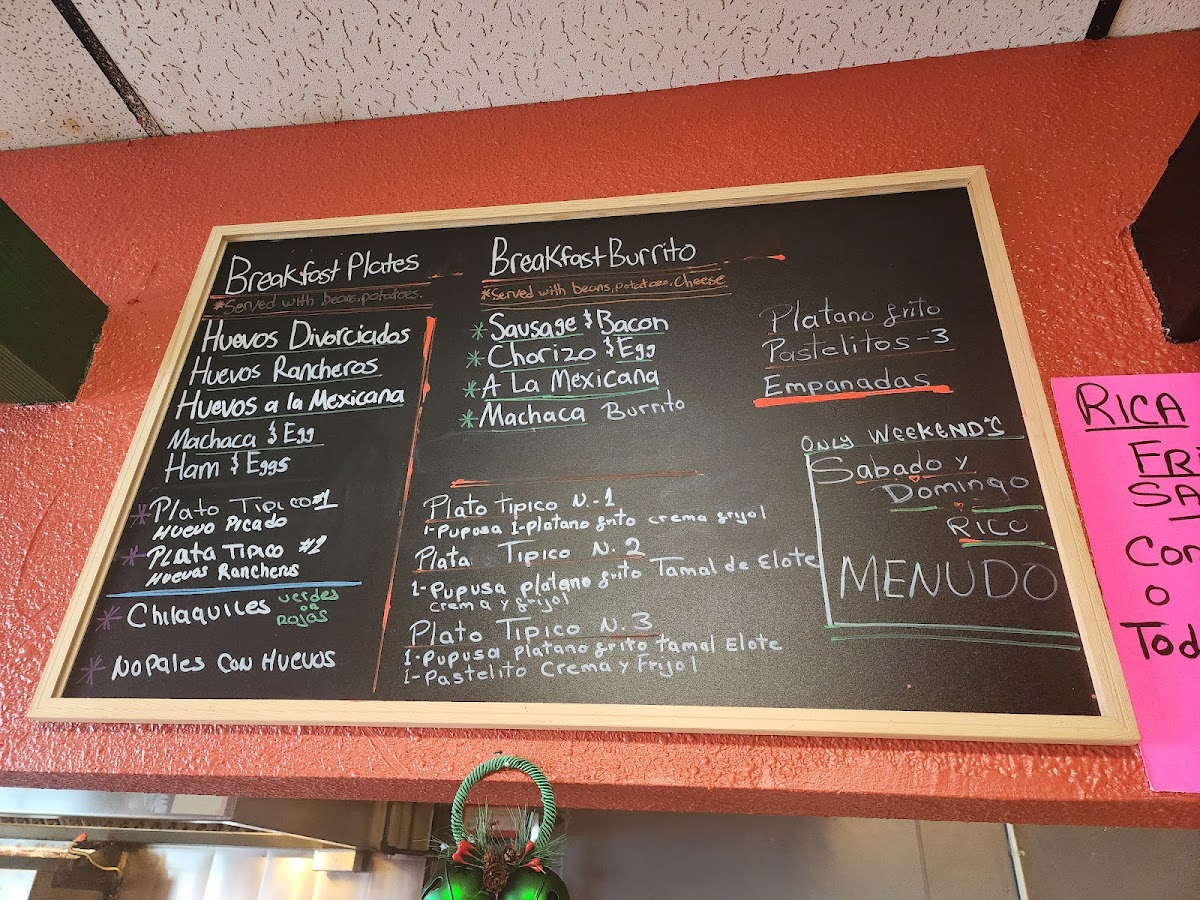 Breakfast Plates
*Served with beans, potatoes.
Huevos Divorciados
Huevos Rancheros
Huevos a la Mexicana
Machaca & Egg
Ham & Eggs
* Plato Tipico #1
Huevo Picado
* Plata Tipico #2
Huevos Rancheros
* Chilaquiles verdes
oa
Rojas
* Nopales con Huevos
Breakfast Burrito
*Served with beans, potatoes, cheese
* Sausage & Bacon
* Chorizo & Egg
* A La Mexicana
* Machaca Burrito
Plato tipico N.-1
1-Pupusa 1-platano frito crema frijol
Plata Tipico N. 2
1-Pupusa platano frito Tamal de Elote
crema y frijol
Plato Tipico N. 3
1-Pupusa platano frito Tamal Elote
1-Pastelito Crema y Frijol
Platano frito
Pastelitos-3
Empanadas
Only Weekend's
Sabado y
Domingo
Rico
MENUDO
RICA
o